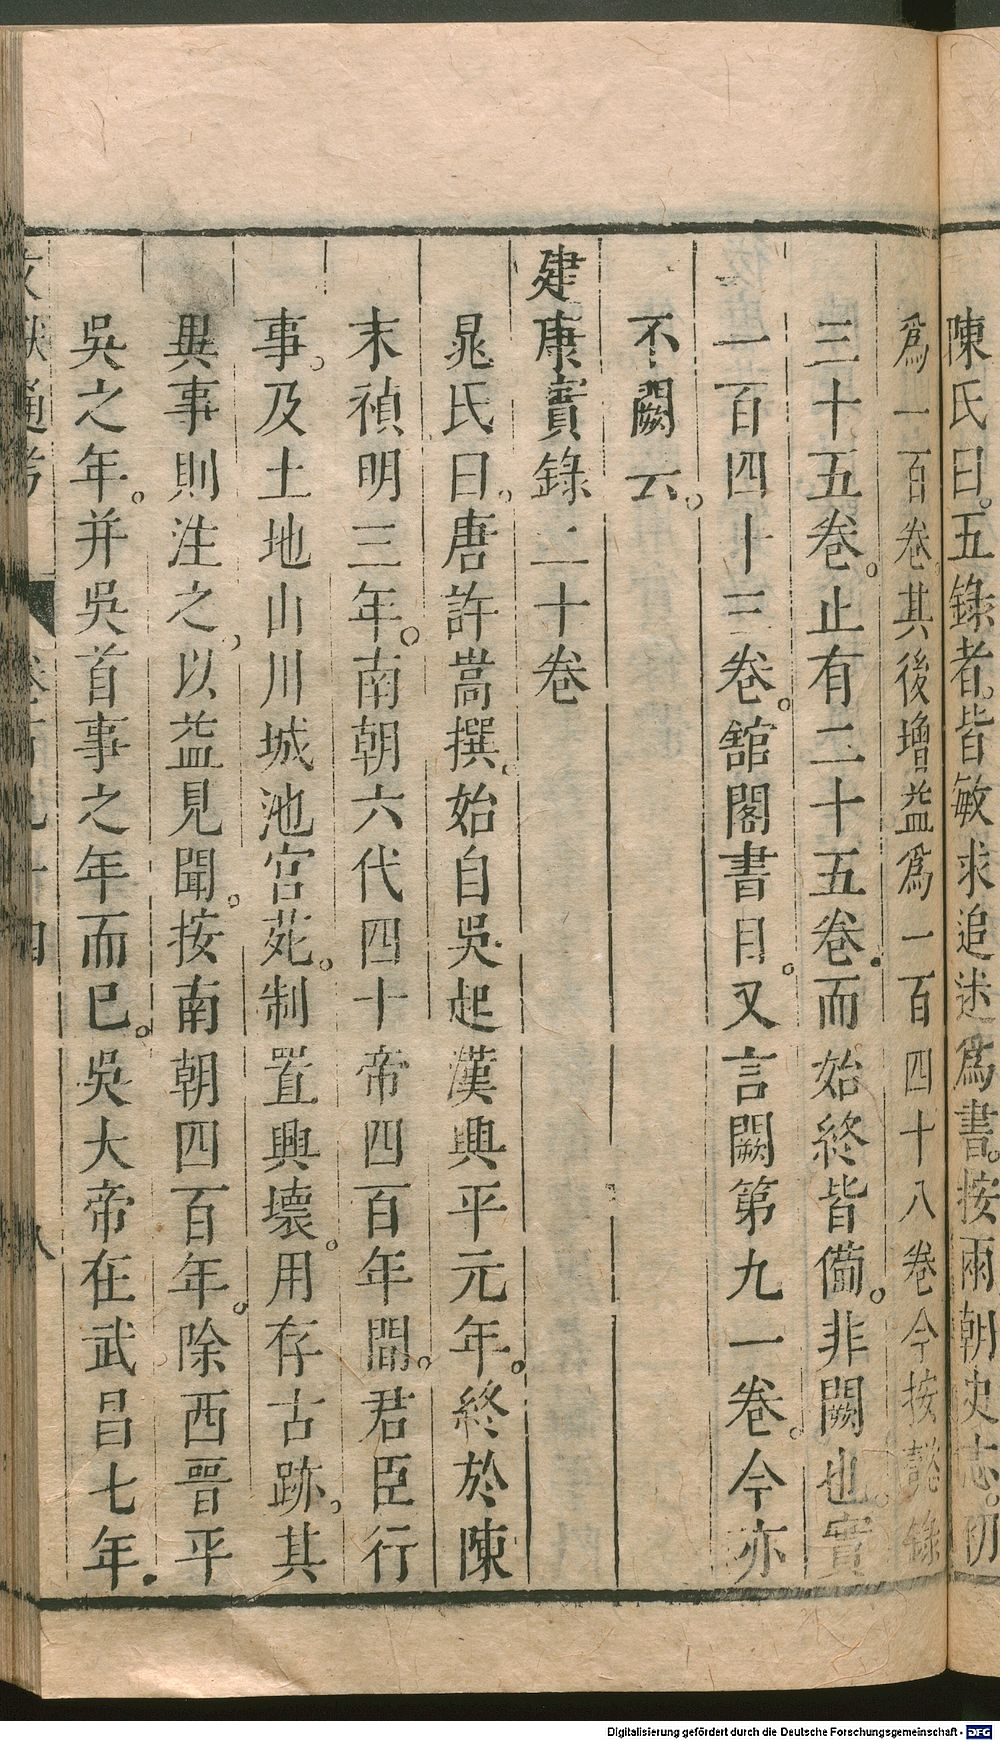 陳氏曰。五錄者。皆敏求追述爲書。按兩朝史志。初
爲一百卷其後增益爲一百四十八卷今按懿錄
三十五卷。止有二十五卷。而始終皆備。非闕也。實
一百四十三卷。館閣書目。又言闕第九一卷。今亦
不闕云。
建康實錄二十卷
晁氏曰。唐許嵩撰。始自吳起漢興平元年。終於陳
末禎明三年。南朝六代四十帝四百年間。君臣行
事。及土地山川城池宮苑。制置興壞。用存古跡。其
異事則注之。以益見聞。按南朝四百年。除西晉平
吳之年。并吳首事之年而已。吳大帝在武昌七年。
文獻通考 卷百九十四 八
Digitalisierung gefördert durch die Deutsche Forschungsgemeinschaft - DFG